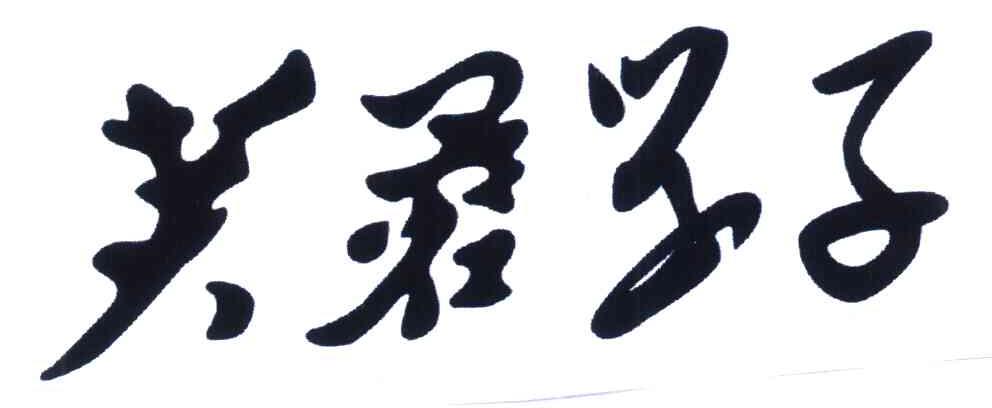 芙蓉学子